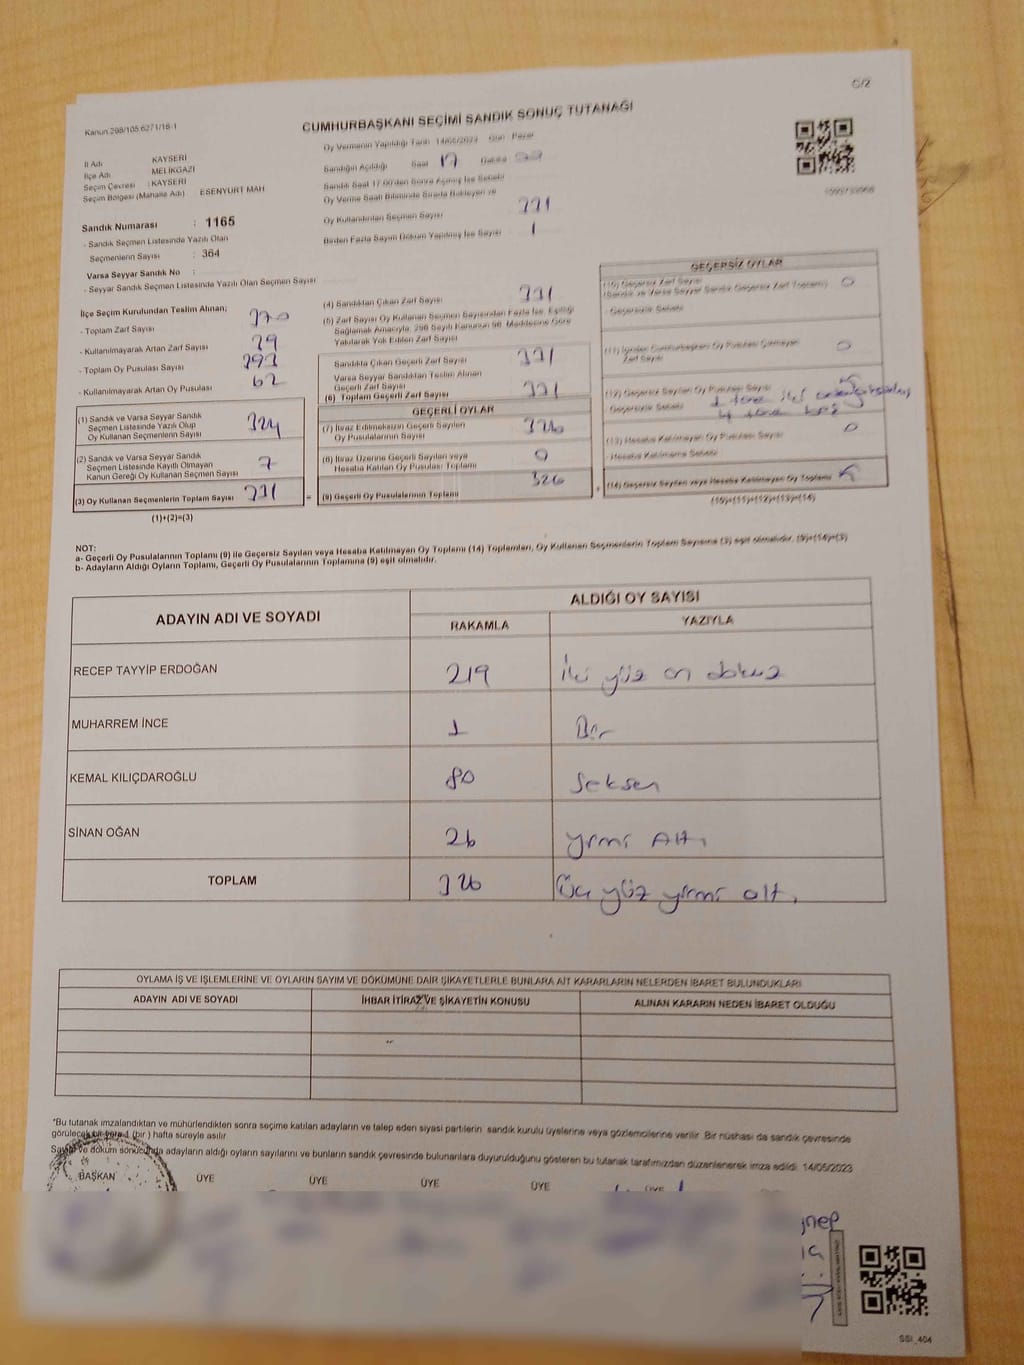 C/2
Kanun:298/105:6271/16-1
CUMHURBAŞKANI SEÇİMİ SANDIK SONUÇ TUTANAĞI
İl Adı KAYSERİ
İlçe Adı MELİKGAZİ
Seçim Çevresi : KAYSERİ
Seçim Bölgesi (Mahalle Adı) : ESENYURT MAH
Oy Vermenin Yapıldığı Tarih 14/05/2023 Gün : Pazar
Sandığın Açıldığı Saat 17 Dakika
Sandık Saat 17:00'den Sonra Açılmış İse Sebebi
Oy Verme Saati Bitiminde Sırada Bekleyen ve
Oy Kullandırılan Seçmen Sayısı 331
Birden Fazla Sayım Döküm Yapılmış İse Sayısı 1
Sandık Numarası : 1165
- Sandık Seçmen Listesinde Yazılı Olan
Seçmenlerin Sayısı : 364
Varsa Seyyar Sandık No :
- Seyyar Sandık Seçmen Listesinde Yazılı Olan Seçmen Sayısı
İlçe Seçim Kurulundan Teslim Alınan;
- Toplam Zarf Sayısı 370
- Kullanılmayarak Artan Zarf Sayısı 39
- Toplam Oy Pusulası Sayısı 393
- Kullanılmayarak Artan Oy Pusulası 62
(1) Sandık ve Varsa Seyyar Sandık
Seçmen Listesinde Yazılı Olup
Oy Kullanan Seçmenlerin Sayısı 324
(2) Sandık ve Varsa Seyyar Sandık
Seçmen Listesinde Kayıtlı Olmayan
Kanun Gereği Oy Kullanan Seçmen Sayısı 7
(3) Oy Kullanan Seçmenlerin Toplam Sayısı 331 =
(1)+(2)=(3)
(4) Sandıktan Çıkan Zarf Sayısı 331
(5) Zarf Sayısı Oy Kullanan Seçmen Sayısından Fazla İse, Eşitliği
Sağlamak Amacıyla, 298 Sayılı Kanunun 98. Maddesine Göre
Yakılarak Yok Edilen Zarf Sayısı
Sandıkta Çıkan Geçerli Zarf Sayısı 331
Varsa Seyyar Sandıktan Teslim Alınan
Geçerli Zarf Sayısı
(6) Toplam Geçerli Zarf Sayısı 331
GEÇERLİ OYLAR
(7) İtiraz Edilmeksizin Geçerli Sayılan
Oy Pusulalarının Sayısı 326
(8) İtiraz Üzerine Geçerli Sayılan veya
Hesaba Katılan Oy Pusulası Toplamı 0
(9) Geçerli Oy Pusulalarının Toplamı 326 +
GEÇERSİZ OYLAR
(10) Geçersiz Zarf Sayısı
(Sandık ve Varsa Seyyar Sandık Geçersiz Zarf Toplamı) 0
- Geçersizlik Sebebi
(11) İçinden Cumhurbaşkanı Oy Pusulası Çıkmayan
Zarf Sayısı 0
(12) Geçersiz Sayılan Oy Pusulası Sayısı 5
- Geçersizlik Sebebi 1 tane iki
4 tane boş
(13) Hesaba Katılmayan Oy Pusulası Sayısı 0
- Hesaba Katılmama Sebebi
(14) Geçersiz Sayılan veya Hesaba Katılmayan Oy Toplamı 5
(10)+(11)+(12)+(13)=(14)
NOT:
a- Geçerli Oy Pusulalarının Toplamı (9) ile Geçersiz Sayılan veya Hesaba Katılmayan Oy Toplamı (14) Toplamları, Oy Kullanan Seçmenlerin Toplam Sayısına (3) eşit olmalıdır. (9)+(14)=(3)
b- Adayların Aldığı Oyların Toplamı, Geçerli Oy Pusulalarının Toplamına (9) eşit olmalıdır.
ADAYIN ADI VE SOYADI ALDIĞI OY SAYISI
RAKAMLA YAZIYLA
RECEP TAYYİP ERDOĞAN 219 İki yüz on dokuz
MUHARREM İNCE 1 Bir
KEMAL KILIÇDAROĞLU 80 Seksen
SİNAN OĞAN 26 yirmi Altı
TOPLAM 326 Üç yüz yirmi altı
OYLAMA İŞ VE İŞLEMLERİNE VE OYLARIN SAYIM VE DÖKÜMÜNE DAİR ŞİKAYETLERLE BUNLARA AİT KARARLARIN NELERDEN İBARET BULUNDUKLARI
ADAYIN ADI VE SOYADI İHBAR İTİRAZ VE ŞİKAYETİN KONUSU ALINAN KARARIN NEDEN İBARET OLDUĞU
*Bu tutanak imzalandıktan ve mühürlendikten sonra seçime katılan adayların ve talep eden siyasi partilerin sandık kurulu üyelerine veya gözlemcilerine verilir. Bir nüshası da sandık çevresinde
görülecek bir yere 1 (bir ) hafta süreyle asılır.
Sayım ve döküm sonucunda adayların aldığı oyların sayılarını ve bunların sandık çevresinde bulunanlara duyurulduğunu gösteren bu tutanak tarafımızdan düzenlenerek imza edildi. 14/05/2023
BAŞKAN ÜYE ÜYE ÜYE ÜYE ÜYE
SSI_404